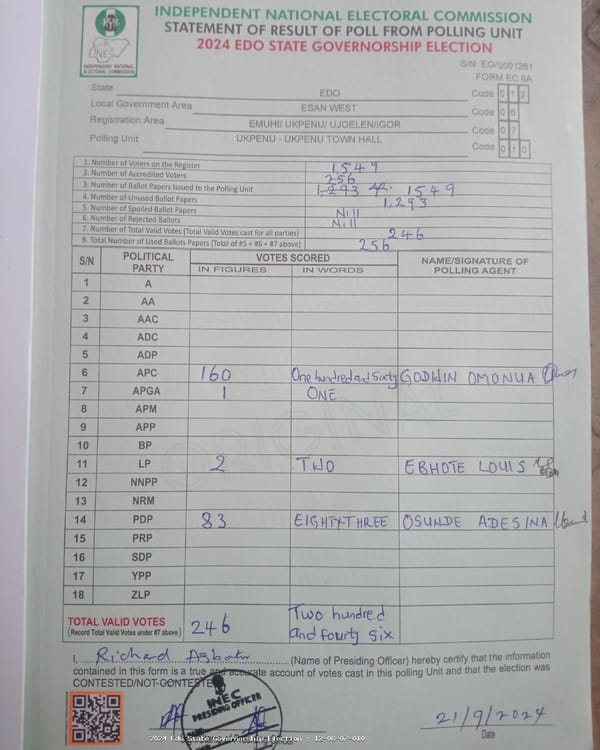 INDEPENDENT NATIONAL ELECTORAL COMMISSION
STATEMENT OF RESULT OF POLL FROM POLLING UNIT
2024 EDO STATE GOVERNORSHIP ELECTION
INEC
INDEPENDENT NATIONAL
ELECTORAL COMMISSION
S/N: EG/0001261
FORM EC 8A
State EDO Code 012
Local Government Area ESAN WEST Code 06
Registration Area EMUHI/ UKPENU/ UJOELEN/IGOR Code 07
Polling Unit UKPENU - UKPENU TOWN HALL Code 010
1. Number of Voters on the Register 1,549
2. Number of Accredited Voters 256
3. Number of Ballot Papers Issued to the Polling Unit 1,293 1549
4. Number of Unused Ballot Papers 1,293
5. Number of Spoiled Ballot Papers Nill
6. Number of Rejected Ballots Nill
7. Number of Total Valid Votes (Total Valid Votes cast for all parties) 246
8. Total Number of Used Ballots Papers (Total of #5 + #6 + #7 above) 256
S/N POLITICAL PARTY VOTES SCORED NAME/SIGNATURE OF POLLING AGENT
IN FIGURES IN WORDS
1 A
2 AA
3 AAC
4 ADC
5 ADP
6 APC 160 One hundred and Sixty GODWIN OMONUA
7 APGA 1 ONE
8 APM
9 APP
10 BP
11 LP 2 TWO EBHOTE LOUIS
12 NNPP
13 NRM
14 PDP 83 EIGHTY-THREE OSUNDE ADESINA
15 PRP
16 SDP
17 YPP
18 ZLP
ORIGINAL
TOTAL VALID VOTES 246 Two hundred
(Record Total Valid Votes under #7 above) and fourty six
I, Richard (Name of Presiding Officer) hereby certify that the information
contained in this form is a true and accurate account of votes cast in this polling Unit and that the election was
CONTESTED/NOT CONTESTED
INEC
PRESIDING OFFICER
21/9/2024
Date
2024 Edo State Governorship Election : 12-06-07-010